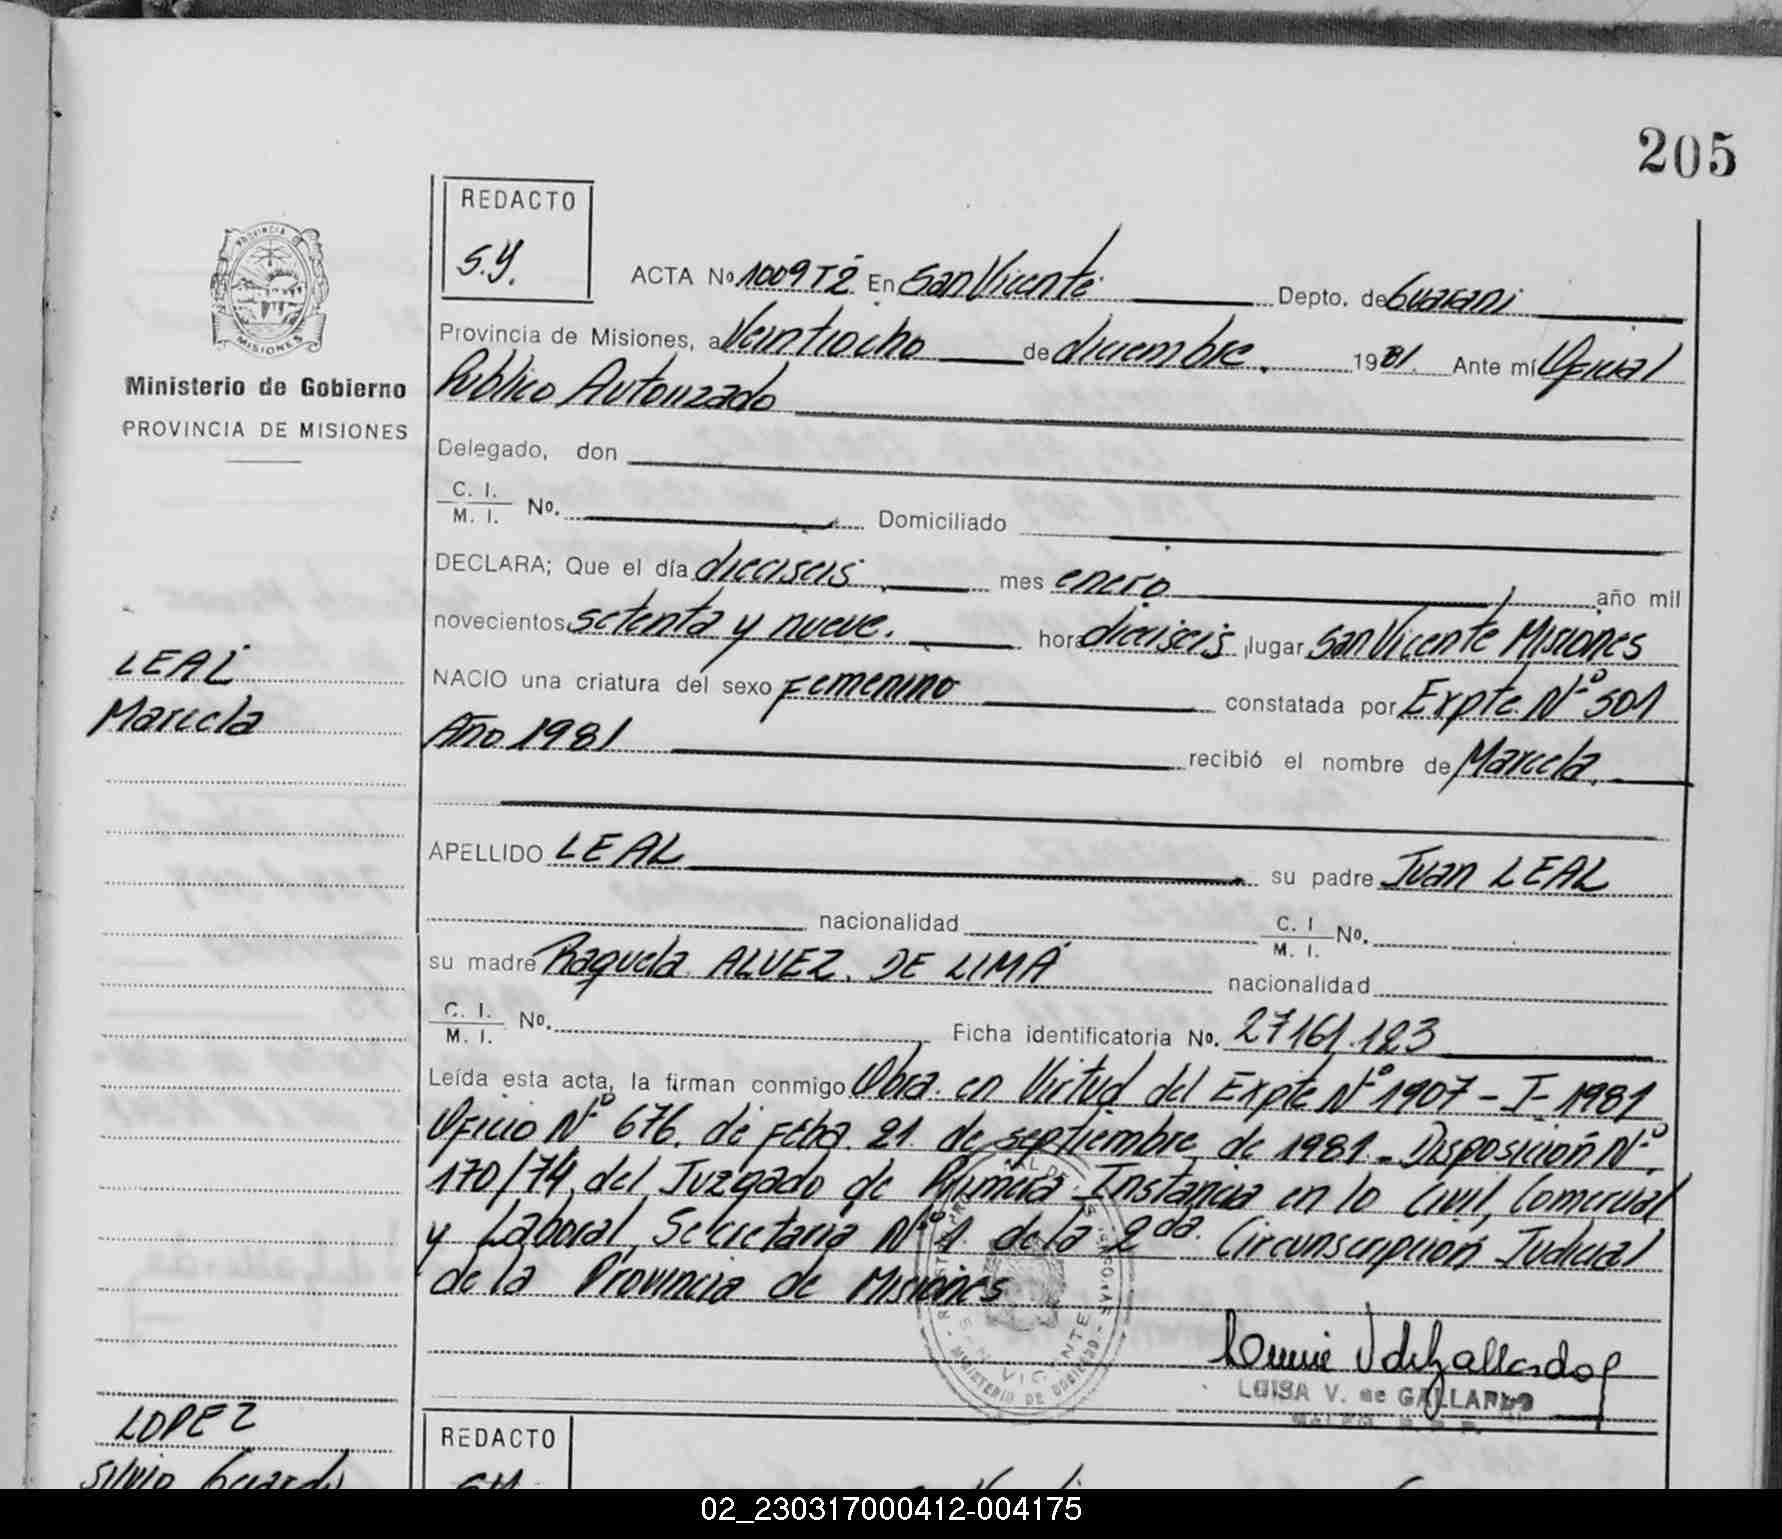 205
REDACTO
S.Y.
ACTA Nº 1009 T2 En San Vicente Depto. de Guarani
Provincia de Misiones, a Veintiocho de diciembre. 1981. Ante mí Oficial
Publico Autorizado
Ministerio de Gobierno
PROVINCIA DE MISIONES
Delegado, don
C. I.
M. I. Nº. Domiciliado
DECLARA; Que el día dieciseis mes enero año mil
novecientos setenta y nueve. hora dieciseis lugar San Vicente Misiones
LEAL
Marcela
NACIO una criatura del sexo Femenino constatada por Expte Nº 501
Año 1981 recibió el nombre de Marcela.
APELLIDO LEAL su padre Juan LEAL
nacionalidad C. I
M. I. Nº.
su madre Raquela ALVEZ. DE LIMA nacionalidad
C. I.
M. I. Nº. Ficha identificatoria Nº. 27161.123
Leída esta acta, la firman conmigo Obra en Virtud del Expte Nº 1907 - I - 1981
Oficio Nº 676. de Fecha 21 de septiembre de 1981. - Disposición Nº
170/74, del Juzgado de Primera Instancia en lo Civil, Comercial
y Laboral, Secretaria Nº 1 de la 2da. Circunscripción Judicial
de la Provincia de Misiones
MINISTERIO DE GOBIERNO
LUISA V. de GALLARDO
LOPEZ
REDACTO
02_230317000412-004175